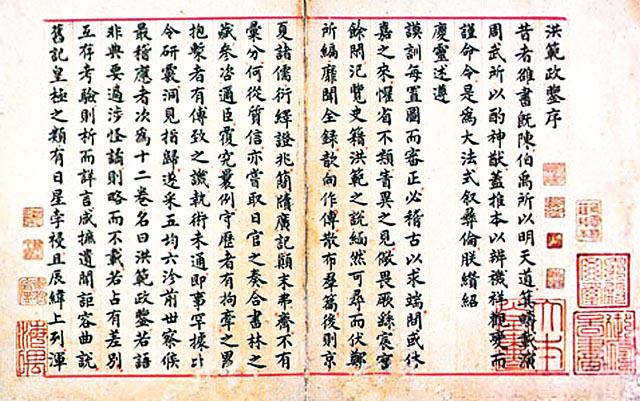 洪範政鑒序
昔者雒書既陳伯禹所以明天道箕疇載演
周武所以酌神猷蓋推本以辨禨祥觀変而
謹命令是為大法式叙彛倫朕纘紹
慶靈述遵
謨訓每置圖而審正必稽古以求端問或休
嘉之來懼省不類眚異之見儆畏厥繇宸
餘閒汜覽史籍洪範之說緬然可尋而伏鄭
所編靡聞全録歆向作傳散布羣篇後則京
夏諸儒衍繹證兆簡牘廣記顛末弗齊不有
彚分何從質信亦嘗取日官之奏合書林之
藏參咨邇臣覆究曩例守歷者有拘牽之累
抱槧者有傅致之譏執術未通即事罕據比
令研覈洞見指歸遂采五均六沴前世察候
最稽應者次為十二卷名曰洪範政鑒若語
非典要過涉怪譎則略而不載若占有差別
互存考驗則析而詳言咸摭遺聞詎容曲說
舊記皇極之類有日星孛祲且辰緯上列渾